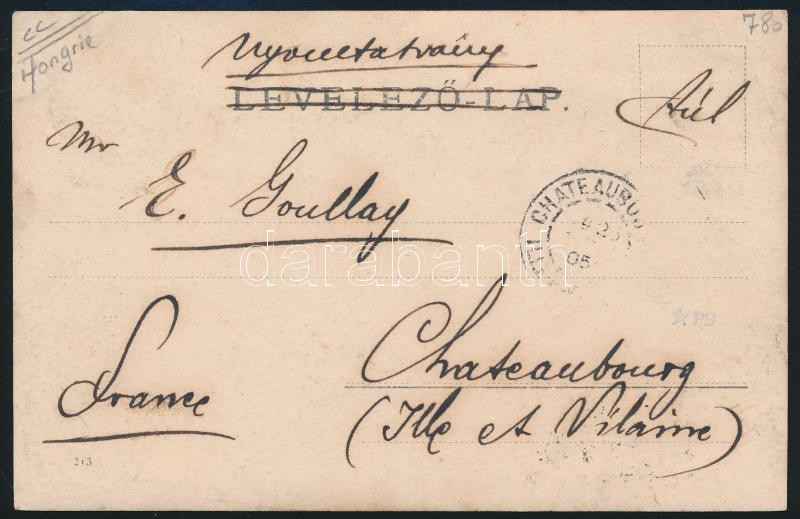 cc
Hongrie
780
Nyomtatvány
LEVELEZŐ-LAP.
Túl
Mr
E. Goullay
CHATEAUBO
05
darabanth
France
Chateaubourg
(Ille et Vilaine)
213